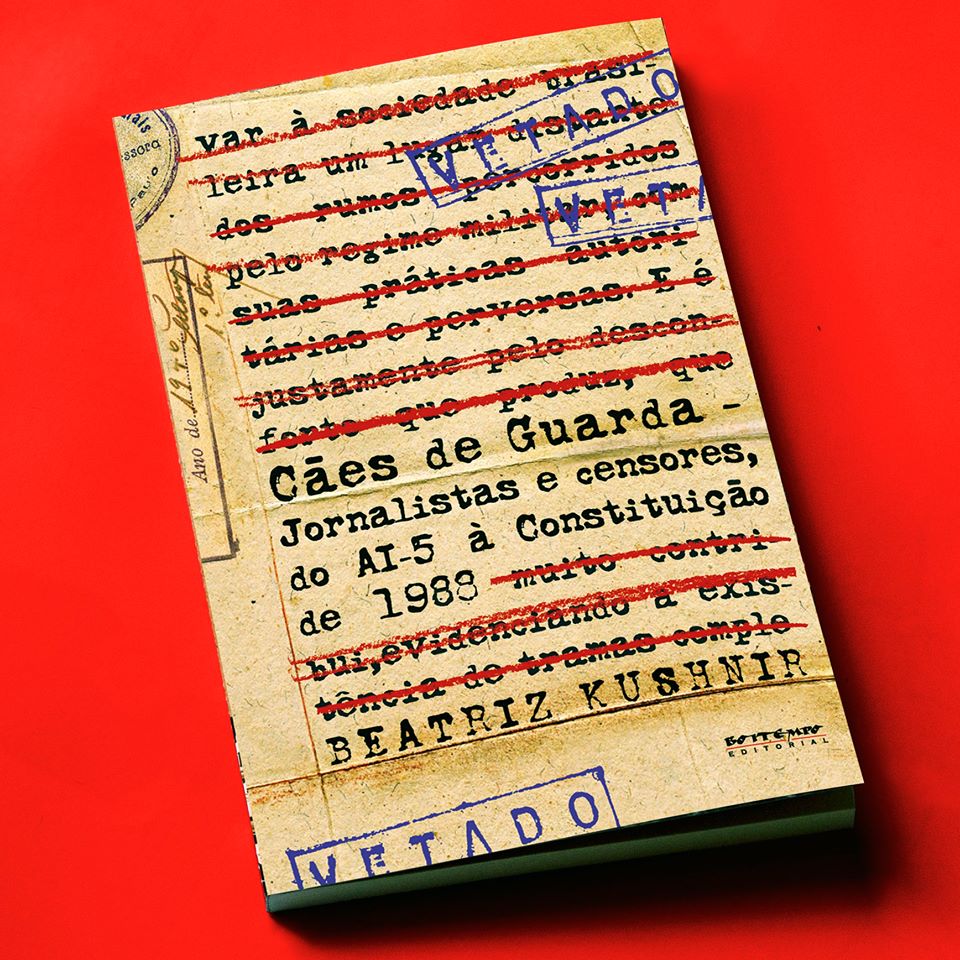 var à sociedade brasi-
leira um lugar distante
dos rumos percorridos
pelo regime militar com
suas práticas autori
tárias e perversas. E é
justamente pelo descon-
forto que produz, que
Cães de Guarda –
Jornalistas e censores,
do AI-5 à Constituição
de 1988 muito contri-
bui, evidenciando a exis-
tência de tramas comple
BEATRIZ KUSHNIR
BOITEMPO
EDITORIAL
VETADO
VETA
VETADO
ais
ssora
Paulo
Ano de 19